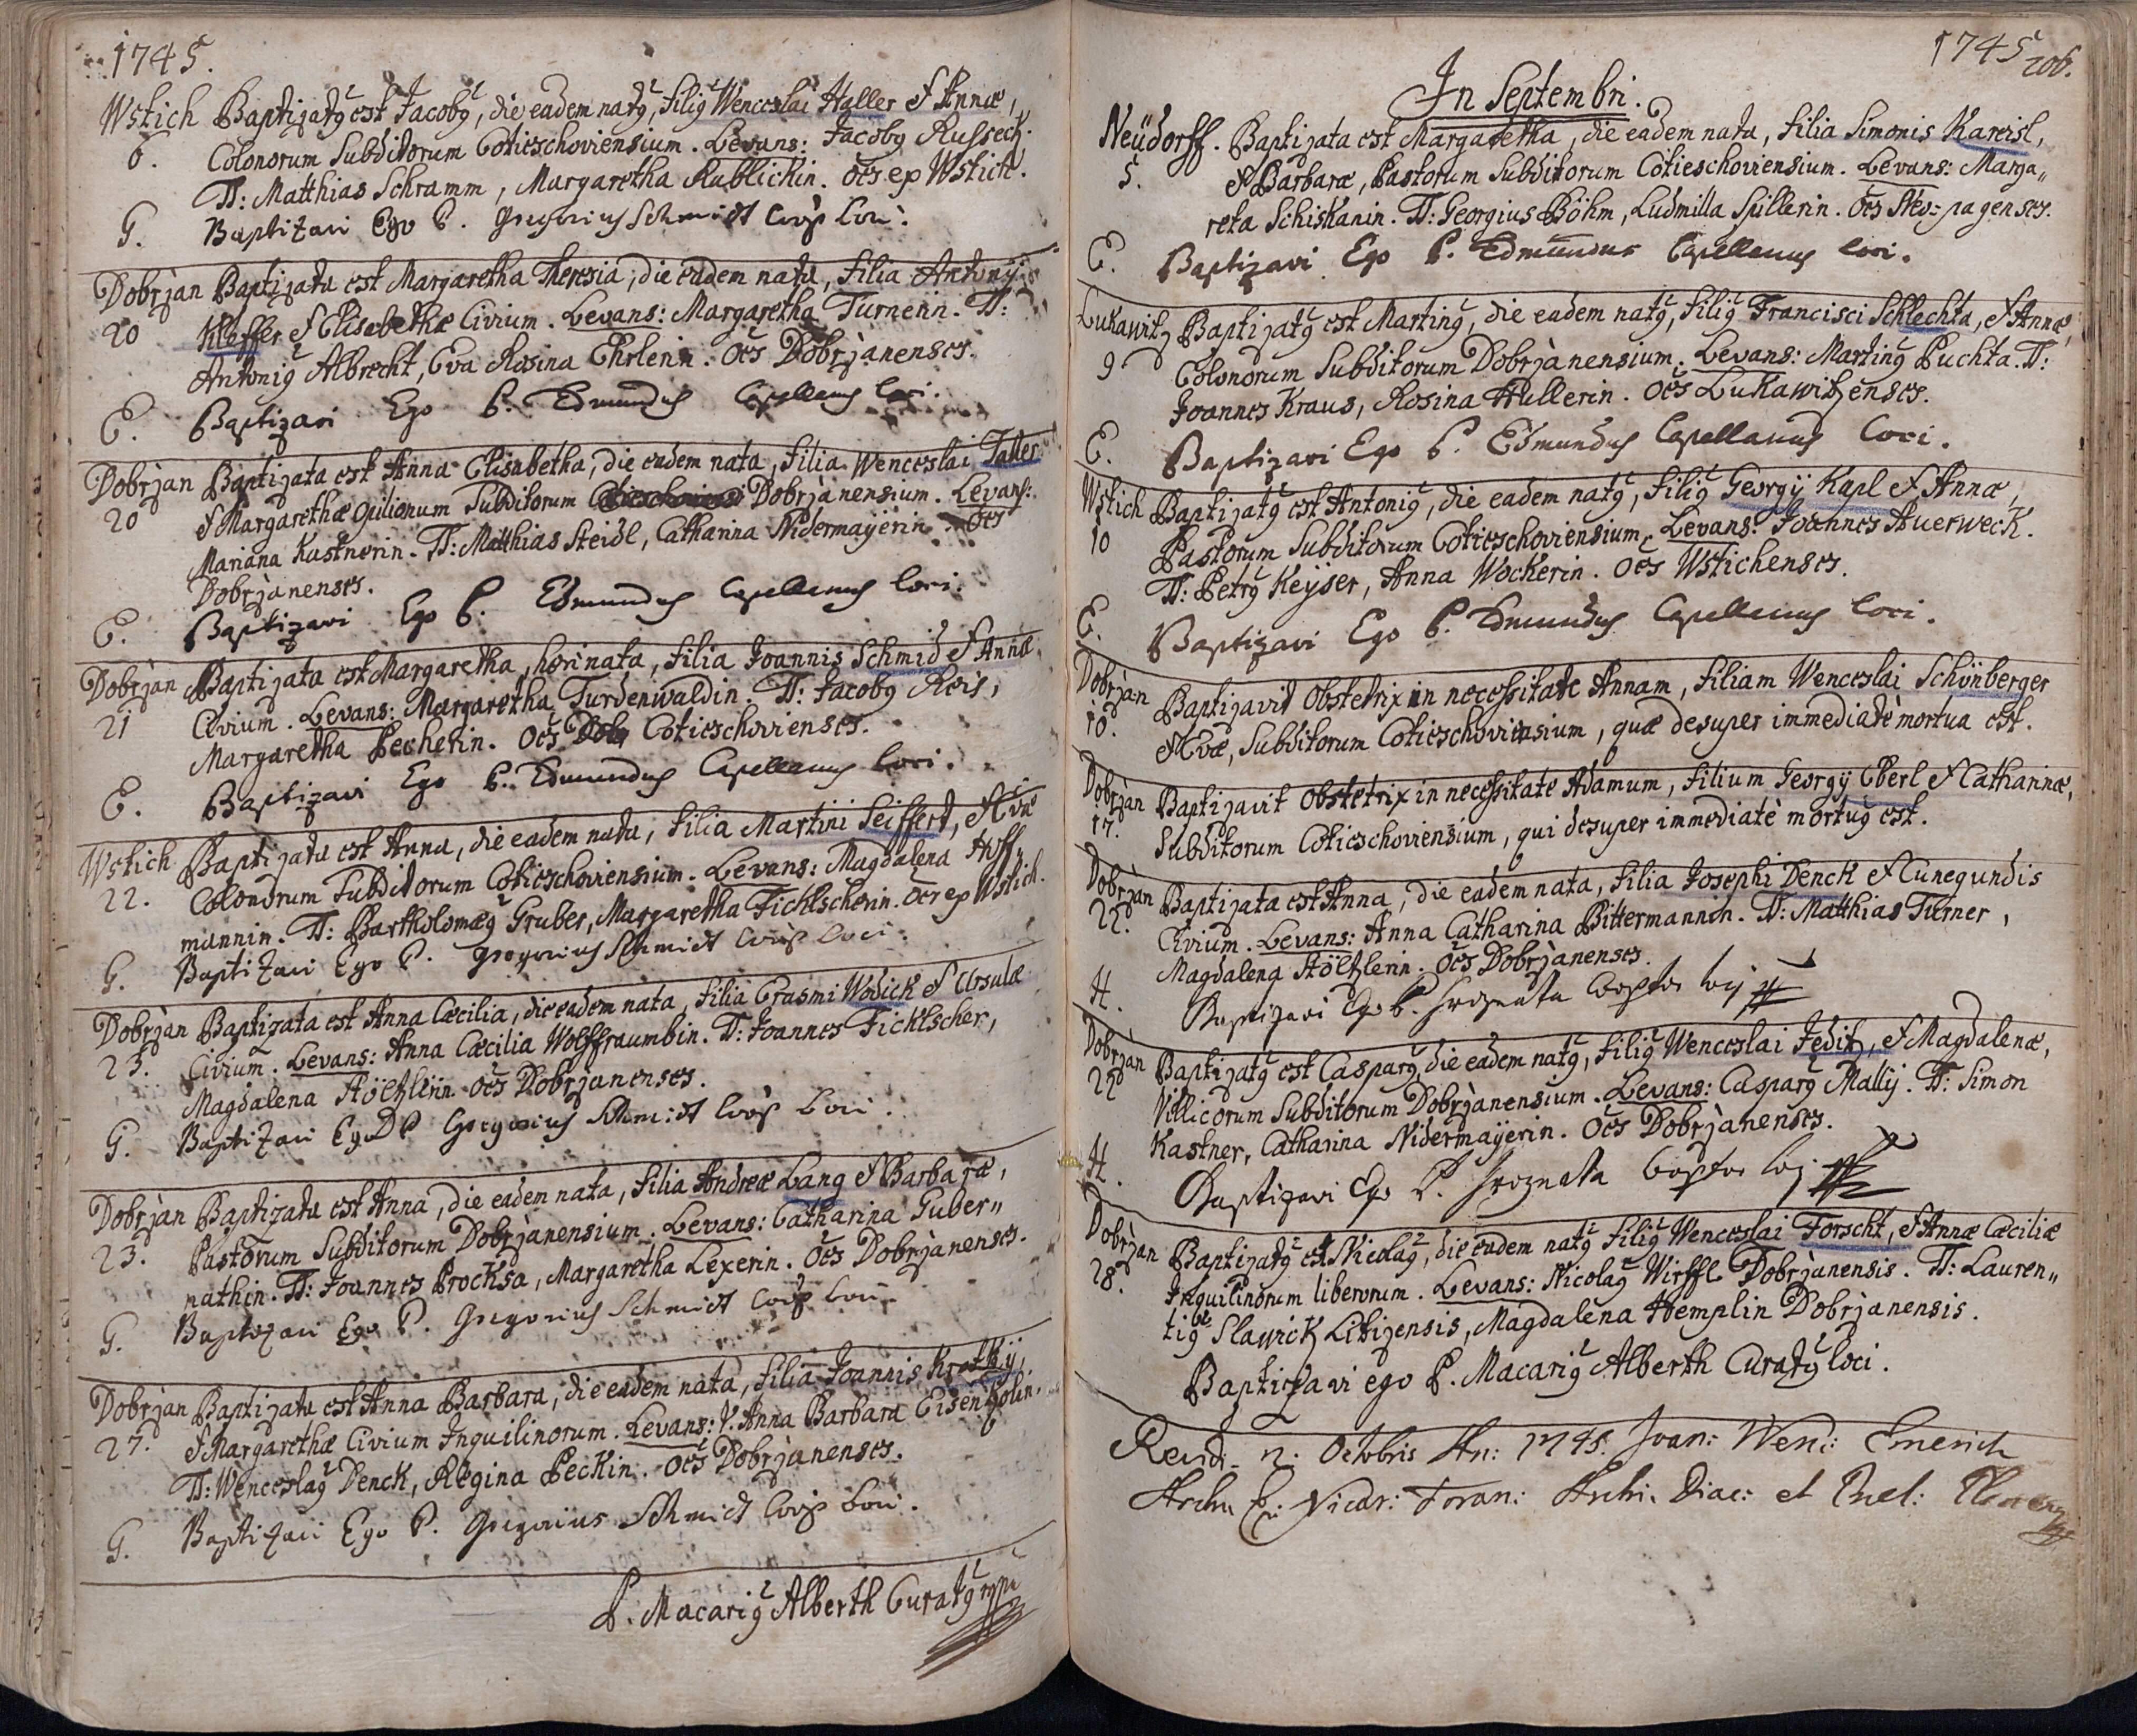 1745.
Wstich Baptizatꝰ est Jacobꝰ, die eadem natꝰ, filiꝰ Wenceslai Haller & Annæ,
6. Colonorum Subditorum Cotieschoviensium. Levans: Jacobꝰ Russeck.
TT: Matthias Schramm, Margaretha Kublickin. Oẽs ex Wstich.
G. Baptizavi Ego P. Gregorius Schmidt Coõp Loci.
Dobrjan Baptizata est Margaretha Theresia, die eadem nata, filia Antonij
20 Kleffer & Elisabethæ Civium. Levans: Margaretha Turnerin. TT:
Antoniꝰ Albrecht, Eva Rosina Ehrlerin. Oẽs Dobrjanenses.
E. Baptizavi Ego P. Edmundus Capellanus loci.
Dobrjan Baptizata est Anna Elisabetha, die eadem nata, filia Wenceslai Taller
20 & Margarethæ Opilionum Subditorum Dobrjanensium. Levans:
Mariana Kastnerin. TT: Matthias Steidl, Catharina Nidermaÿerin. Oẽs
Dobrjanenses.
E. Baptizavi Ego P. Edmundus Capellanus loci.
Dobrjan Baptizata est Margaretha, heri nata, filia Joannis Schmid & Annæ
21 Civium. Levans: Margaretha Turdenwaldin. TT: Jacobꝰ Reis,
Margaretha Pecherin. Oẽs Cotieschovienses.
E. Baptizavi Ego P. Edmundus Capellanus loci.
Wstich Baptizata est Anna, die eadem nata, filia Martini Seiffert, & Evæ
22. Colonorum Subditorum Cotieschoviensium. Levans: Magdalena Hoff„
mannin. TT: Bartholomæꝰ Gruber, Margaretha Fichtscherin. Oẽs ex Wstich.
G. Baptizavi Ego P. Gregorius Schmidt Coõp loci.
Dobrjan Baptizata est Anna Cæcilia, die eadem nata, filia Erasmi Wodick & Ursulæ
23. Civium. Levans: Anna Cæcilia Wolffraumbin. TT: Joannes Fichtscher,
Magdalena Höltzlin. Oẽs Dobrjanenses.
G. Baptizavi Ego P. Gregorius Schmidt Coõp Loci.
Dobrjan Baptizata est Anna, die eadem nata, filia Andreæ Lang & Barbaræ,
23. Pastorum Subditorum Dobrjanensium. Levans: Catharina Guber„
nathin. TT: Joannes Procksa, Margaretha Lexerin. Oẽs Dobrjanenses.
G. Baptizavi Ego P. Gregorius Schmidt Coõp Loci.
Dobrjan Baptizata est Anna Barbara, die eadem nata, filia Joannis Kratkÿ,
27. & Margarethæ Civium Inquilinorum. Levans: V. Anna Barbara Eisenkolin.
TT: Wenceslaꝰ Denck, Regina Peckin. Oẽs Dobrjanenses.
G. Baptizavi Ego P. Gregorius Schmidt Coõp Loci.
P. Macariꝰ Alberth Curatꝰ mpr
1745
206.
In Septembri.
Neüdorff. Baptizata est Margaretha, die eadem nata, filia Simonis Kareisl,
5. & Barbaræ, Pastorum Subditorum Cotieschoviensium. Levans: Marga„
reta Schiskanin. TT: Georgius Böhm, Ludmilla Spillerin. Oẽs Neo-pagenses.
E. Baptizavi Ego P. Edmundus Capellanus loci.
Lukawitz Baptizatꝰ est Martinꝰ, die eadem natꝰ, filiꝰ Francisci Schlechta, & Annæ,
9 Colonorum Subditorum Dobrjanensium. Levans: Martinꝰ Puchta. TT:
Joannes Kraus, Rosina Hullerin. Oẽs Lukawitzenses.
E. Baptizavi Ego P. Edmundus Capellanus loci.
Wstich Baptizatꝰ est Antoniꝰ, die eadem natꝰ, filiꝰ Georgij Kapl & Annæ,
10 Pastorum Subditorum Cotieschoviensium. Levans: Joannes Auerweck.
TT: Petrꝰ Keÿser, Anna Wockerin. Oẽs Wstichenses.
E. Baptizavi Ego P. Edmundus Capellanus loci.
Dobrjan Baptizavit Obstetrix in necessitate Annam, filiam Wenceslai Schönberger
10. & Evæ, Subditorum Cotieschoviensium, quæ desuper immediatè mortua est.
Dobrjan Baptizavit Obstetrix in necessitate Adamum, filium Georgij Eberl & Catharinæ,
17. Subditorum Cotieschoviensium, qui desuper immediatè mortuꝰ est.
Dobrjan Baptizata est Anna, die eadem nata, filia Josephi Denck & Cunegundis
22. Civium. Levans: Anna Catharina Bittermannin. TT: Matthias Turner,
Magdalena Höltzlerin. Oẽs Dobrjanenses.
H. Baptizavi Ego P. Hroznata Coõptor Loci
Dobrjan Baptizatꝰ est Casparꝰ, die eadem natꝰ, filiꝰ Wenceslai Jeditz, & Magdalenæ,
22 Villicorum Subditorum Dobrjanensium. Levans: Casparꝰ Mallÿ. TT: Simon
Kastner, Catharina Nidermaÿerin. Oẽs Dobrjanenses.
H. Baptizavi Ego P. Hroznata Coõptor Loci
Dobrjan Baptizatꝰ est Nicolaꝰ, die eadem natꝰ filiꝰ Wenceslai Forscht, & Annæ Cæciliæ
28. Inquilinorum liberorum. Levans: Nicolaꝰ Wirffl Dobrjanensis. TT: Lauren„
tiꝰ Slawick Litizensis, Magdalena Hemplin Dobrjanensis.
Baptizavi ego P. Macariꝰ Alberth Curatꝰ loci.
Octobris An: 1745. Joan: Wenc: Emerich
Vicar: Foran: Archi. Diac: et